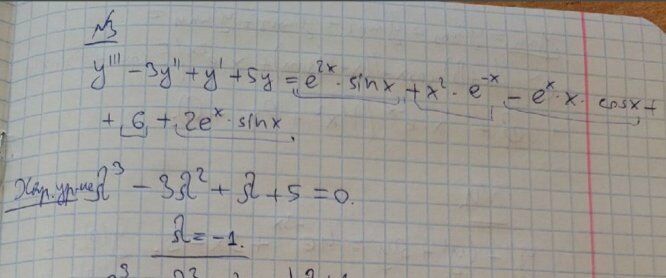 №3
y''' - 3y'' + y' + 5y = e^{2x} · sinx + x² · e^{-x} - e^x · x · cosx +
+ 6 + 2e^x · sinx.
Хар. ур-ие λ³ - 3λ² + λ + 5 = 0.
λ = -1.